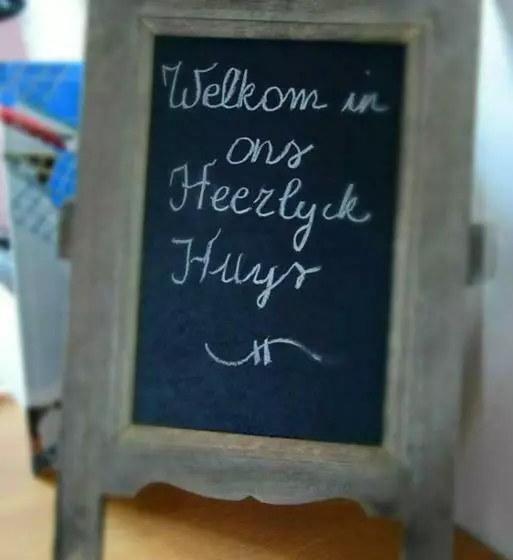 Welkom in
ons
Heerlyck
Huys